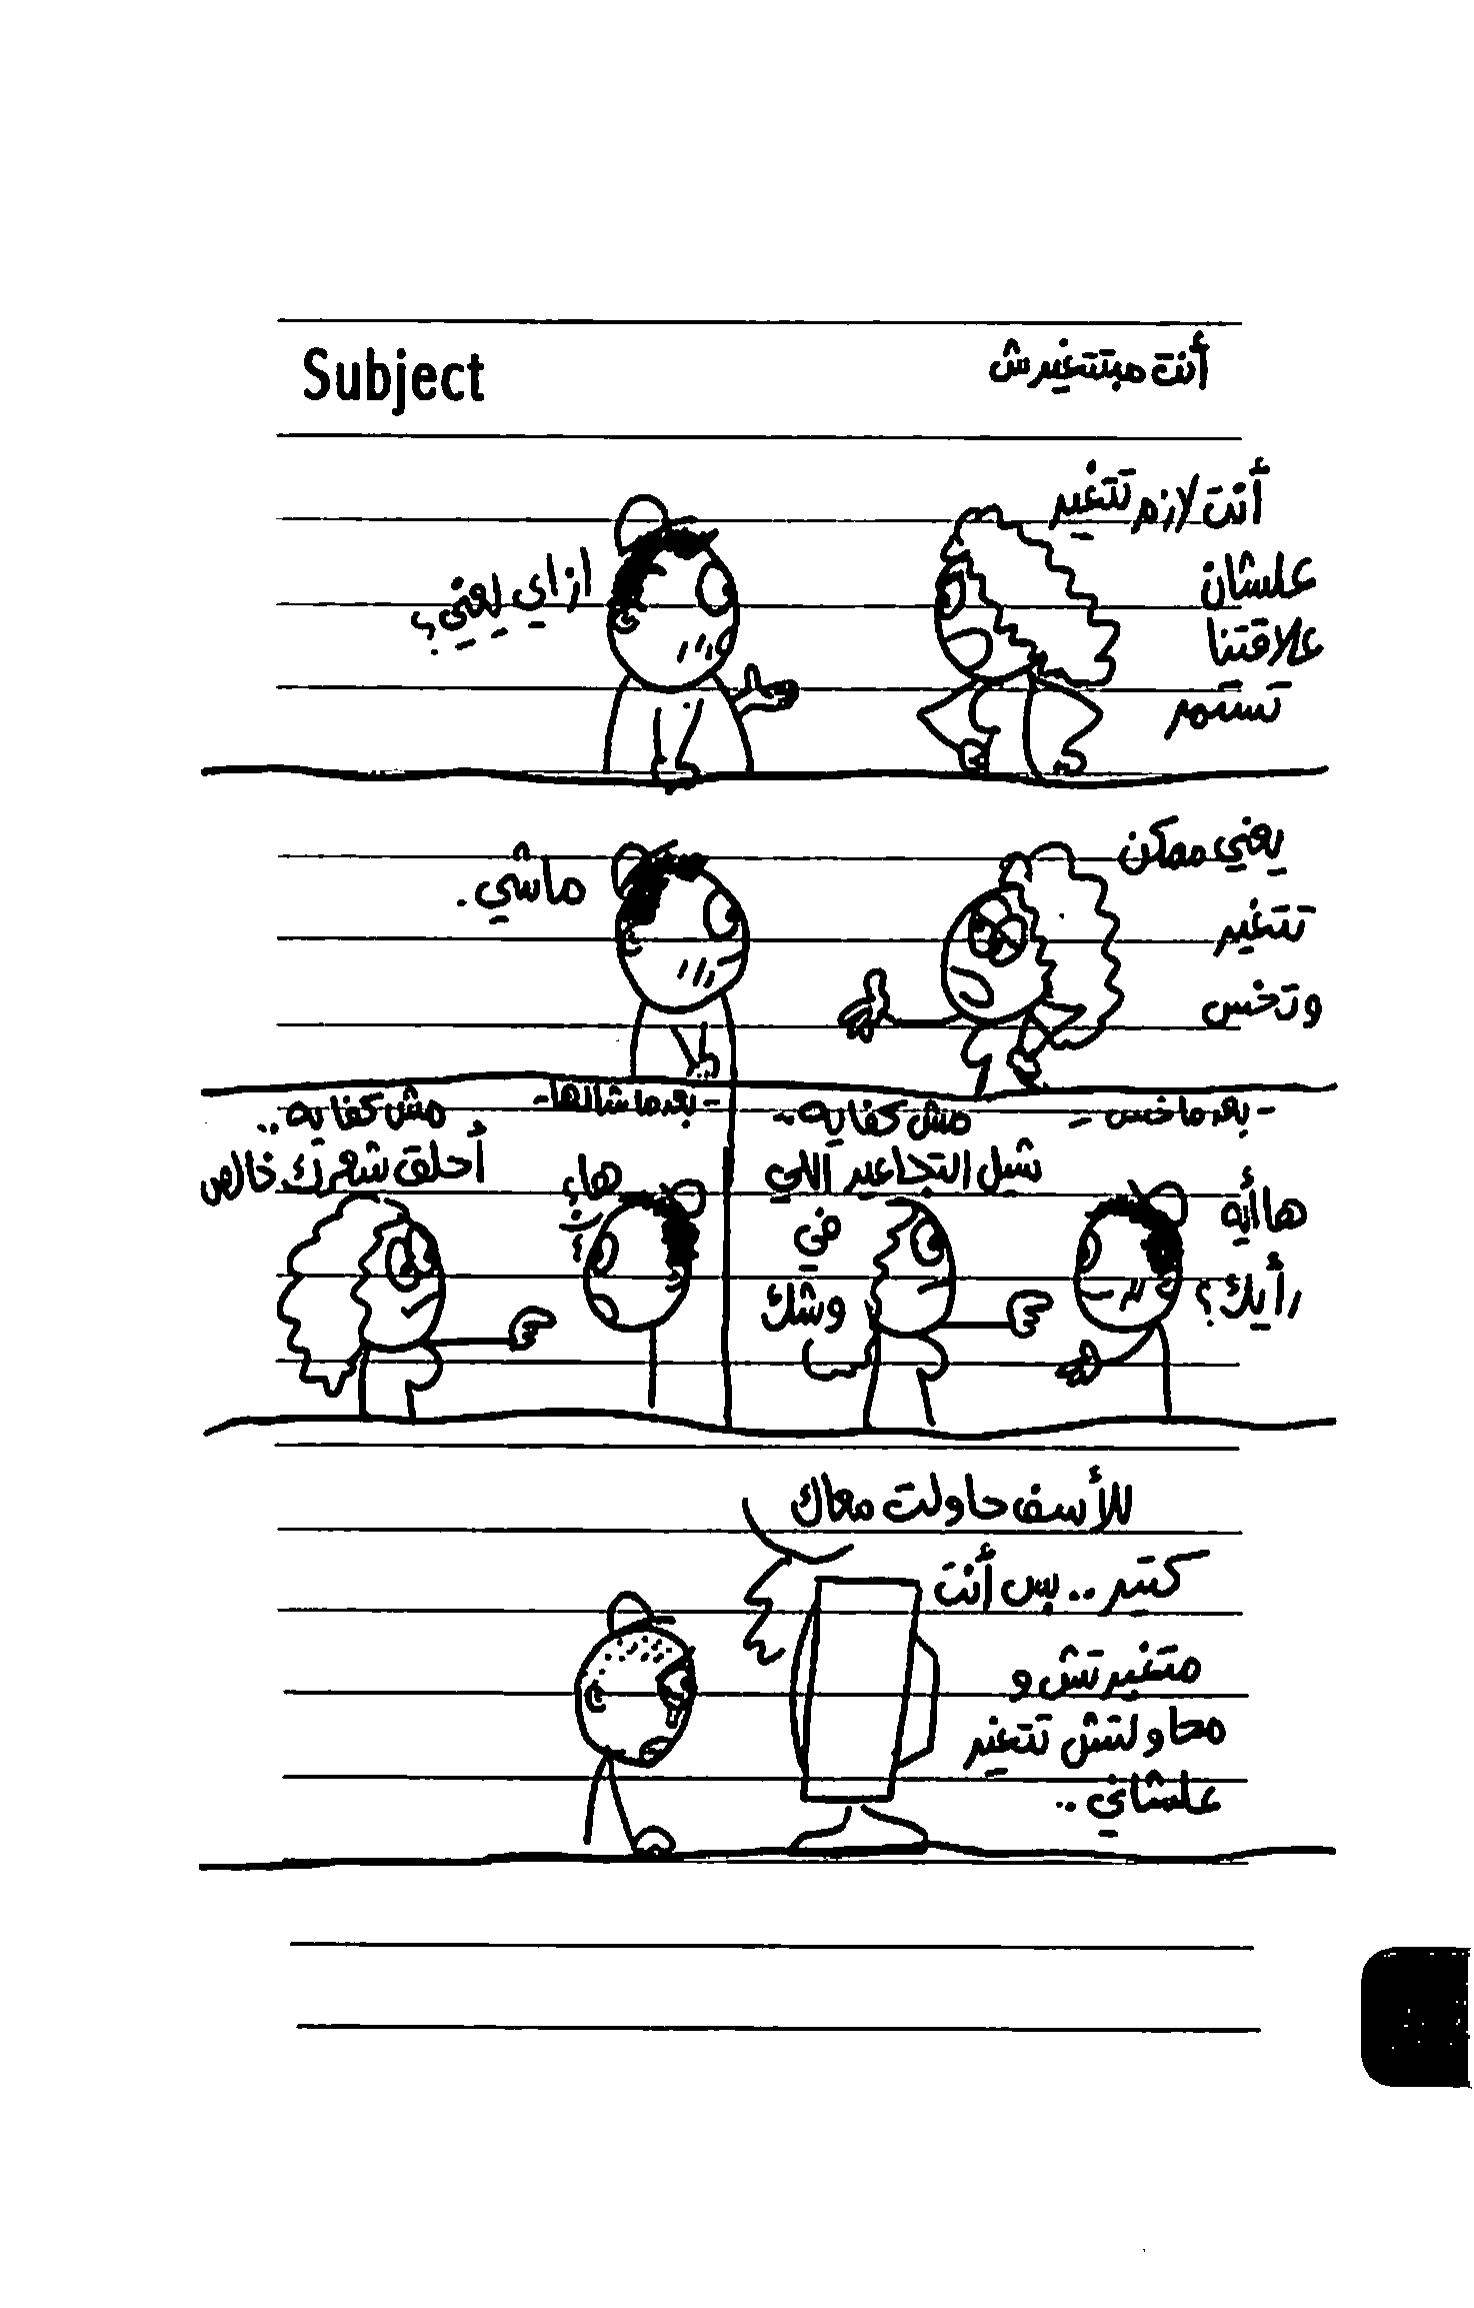 Subject
أنت مبتتغيرش
أنت لازم تتغير
علشان
علاقتنا
تستمر
ازاي يعني؟
يعني ممكن
تتغير
وتخس
ماشي.
- بعد ما خس -
ها أيه
رأيك؟
مش كفايه -
شيل التجاعيد اللي
في
وشك
- بعد ما شالها -
ها؟
مش كفايه ..
أحلق شعرك خالص
للأسف حاولت معاك
كتير .. بس أنت
متغيرتش و
محاولتش تتغير
علشاني ..